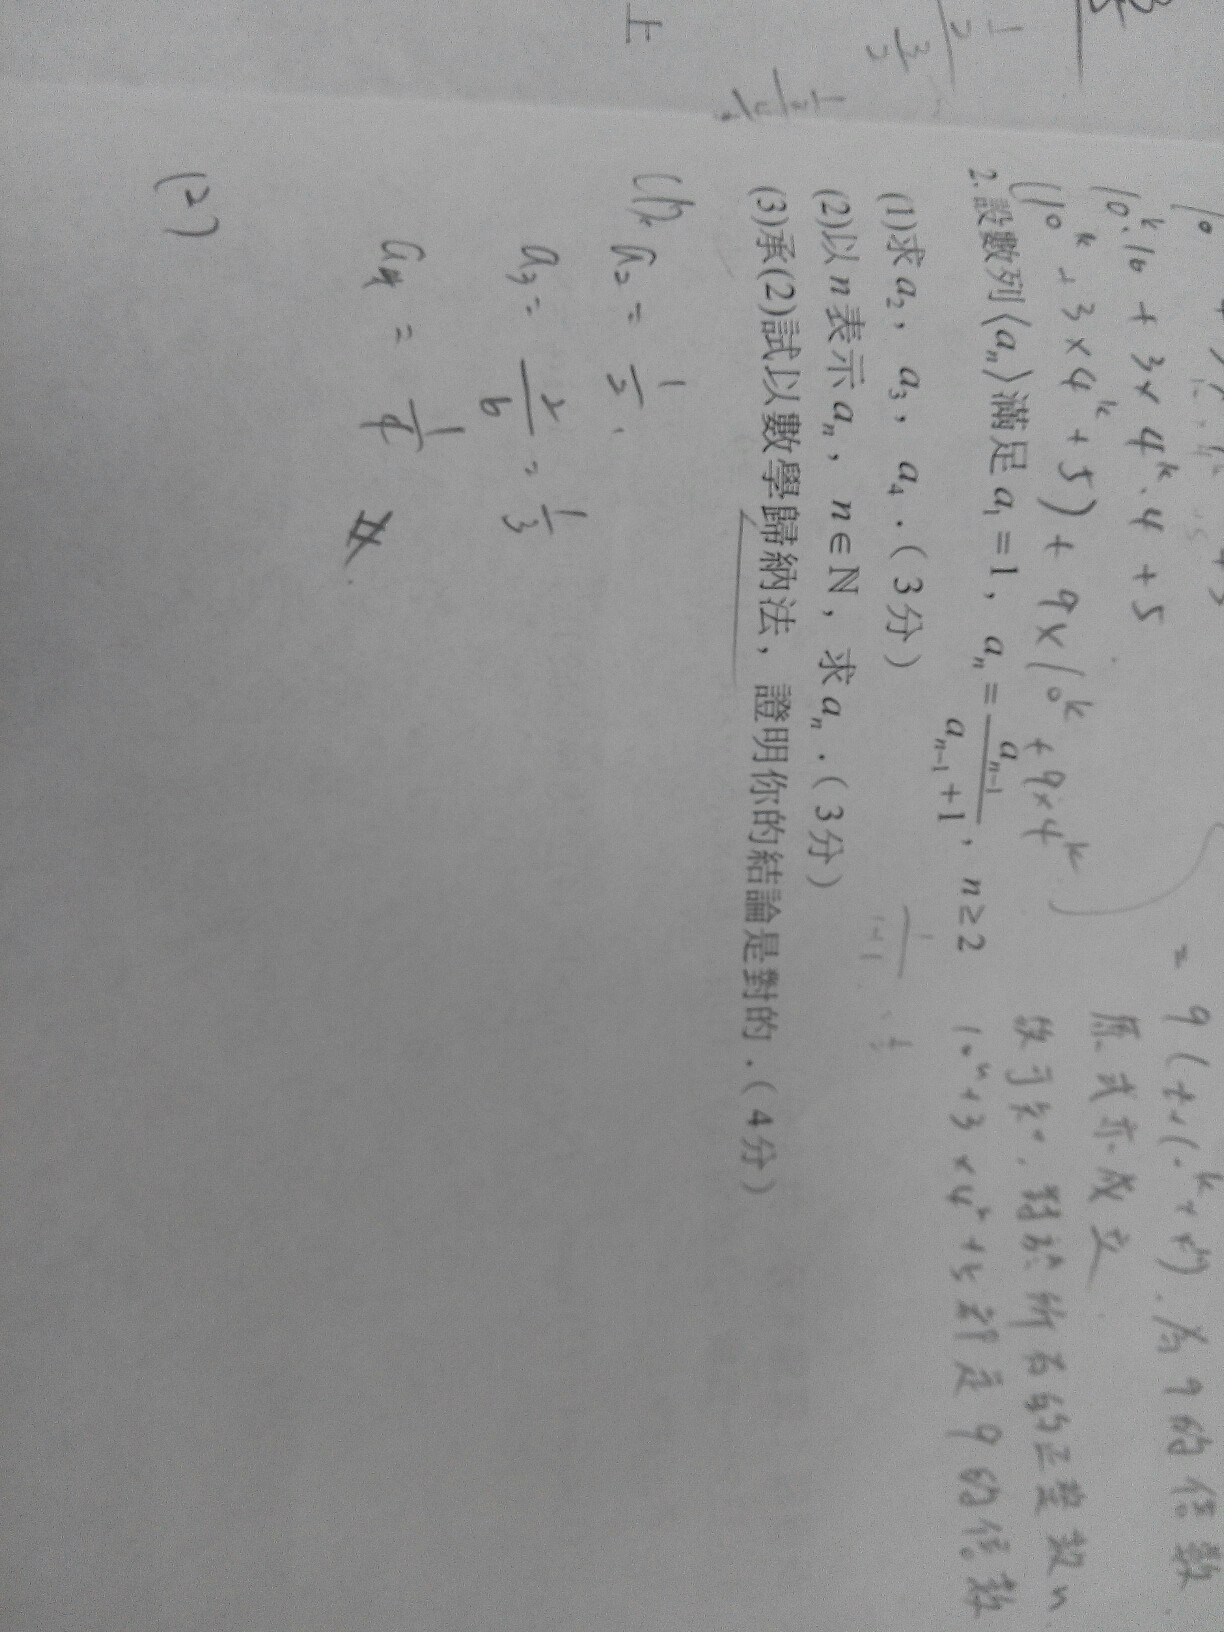 10ᵏ·10 + 3×4ᵏ·4 + 5
(10ᵏ + 3×4ᵏ + 5) + 9×10ᵏ + 9×4ᵏ
為9的倍數
原式亦成立
故可知,對於所有的正整數n
都是9的倍數
2.設數列⟨aₙ⟩滿足a₁=1,aₙ=aₙ₋₁/(aₙ₋₁+1),n≥2
(1)求a₂,a₃,a₄.(3分)
(2)以n表示aₙ,n∈N,求aₙ.(3分)
(3)承(2)試以數學歸納法,證明你的結論是對的.(4分)
上
(1) a₂ = 1/2
a₃ = 2/6 = 1/3
a₄ = 1/4 #
(2)